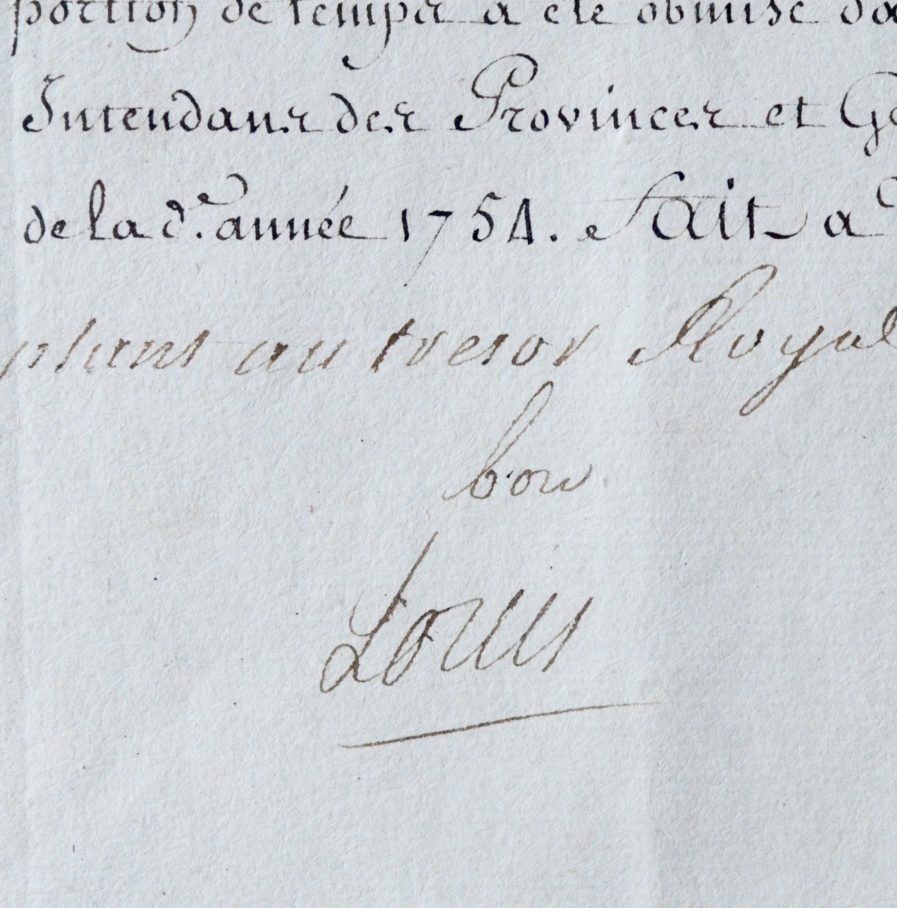 portion de temps a été obmise da
Intendans des Provinces et Ge
de la d.e année 1754. Fait a
ptant au tresor Royal
bon
Louis